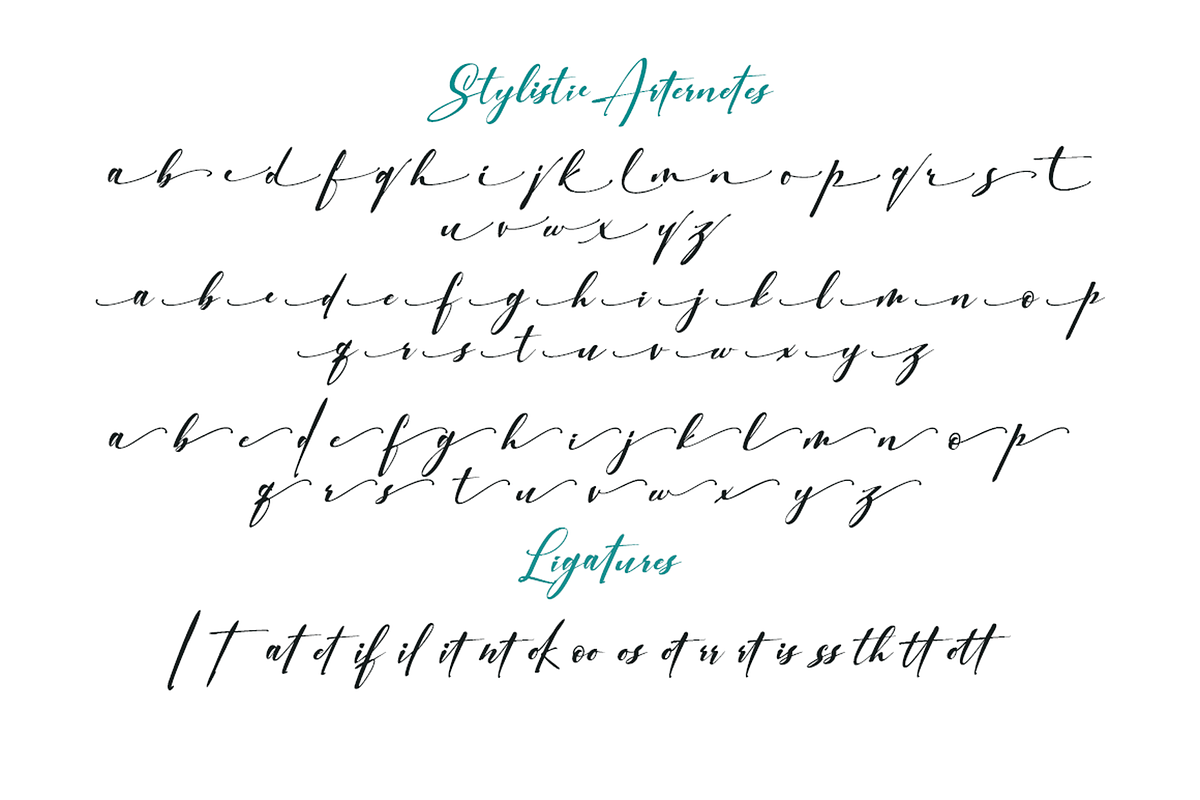 Stylistic Arternetes
a b c d f g h i j k l m n o p q r s t
u v w x y z
a b c d e f g h i j k l m n o p
q r s t u v w x y z
a b c d e f g h i j k l m n o p
q r s t u v w x y z
Ligatures
l t at et if il it nt ok oo os ot rr rt is ss th tt ott